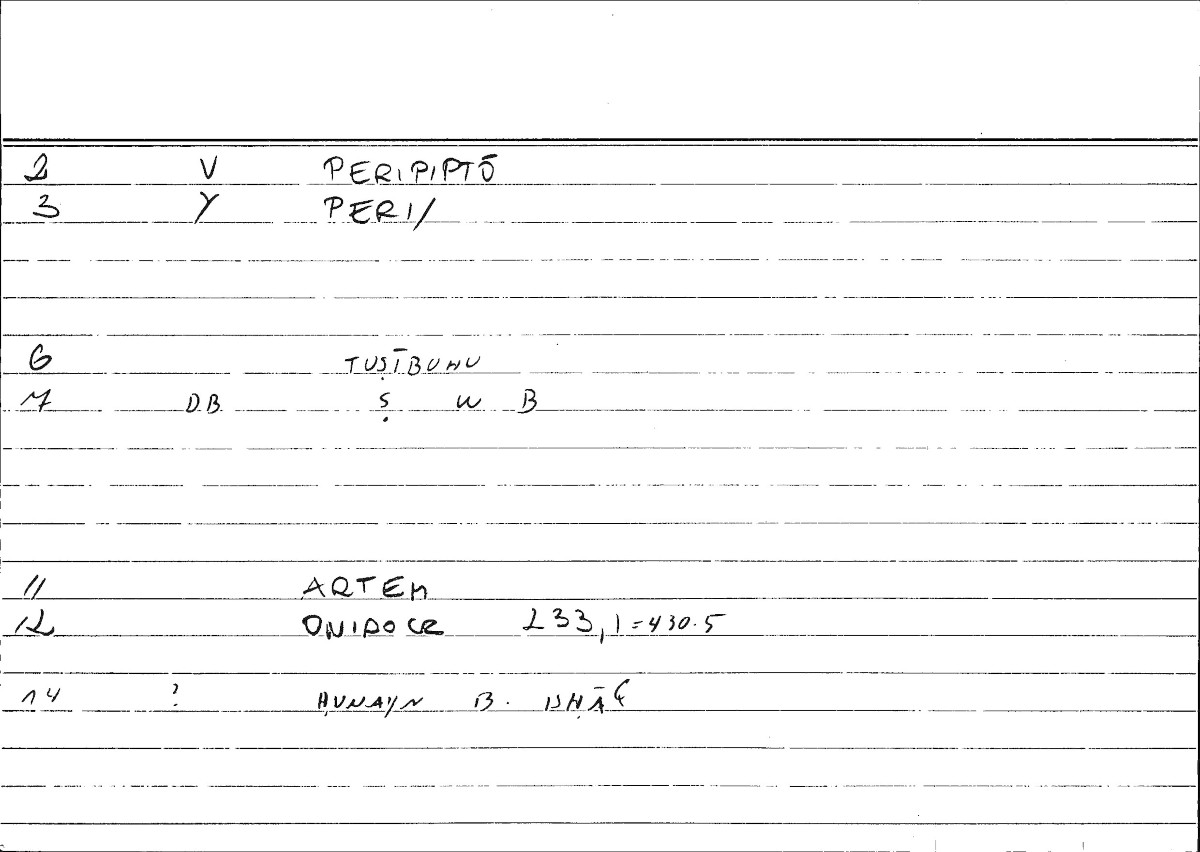 2 V PERIPIPTŌ
3 Y PERI/
6 TUṢĪBUHU
7 DB Ṣ W B
11 ARTEM
12 ONIROCR 233,1=430.5
14 ? ḤUNAYN B. ISḤĀQ